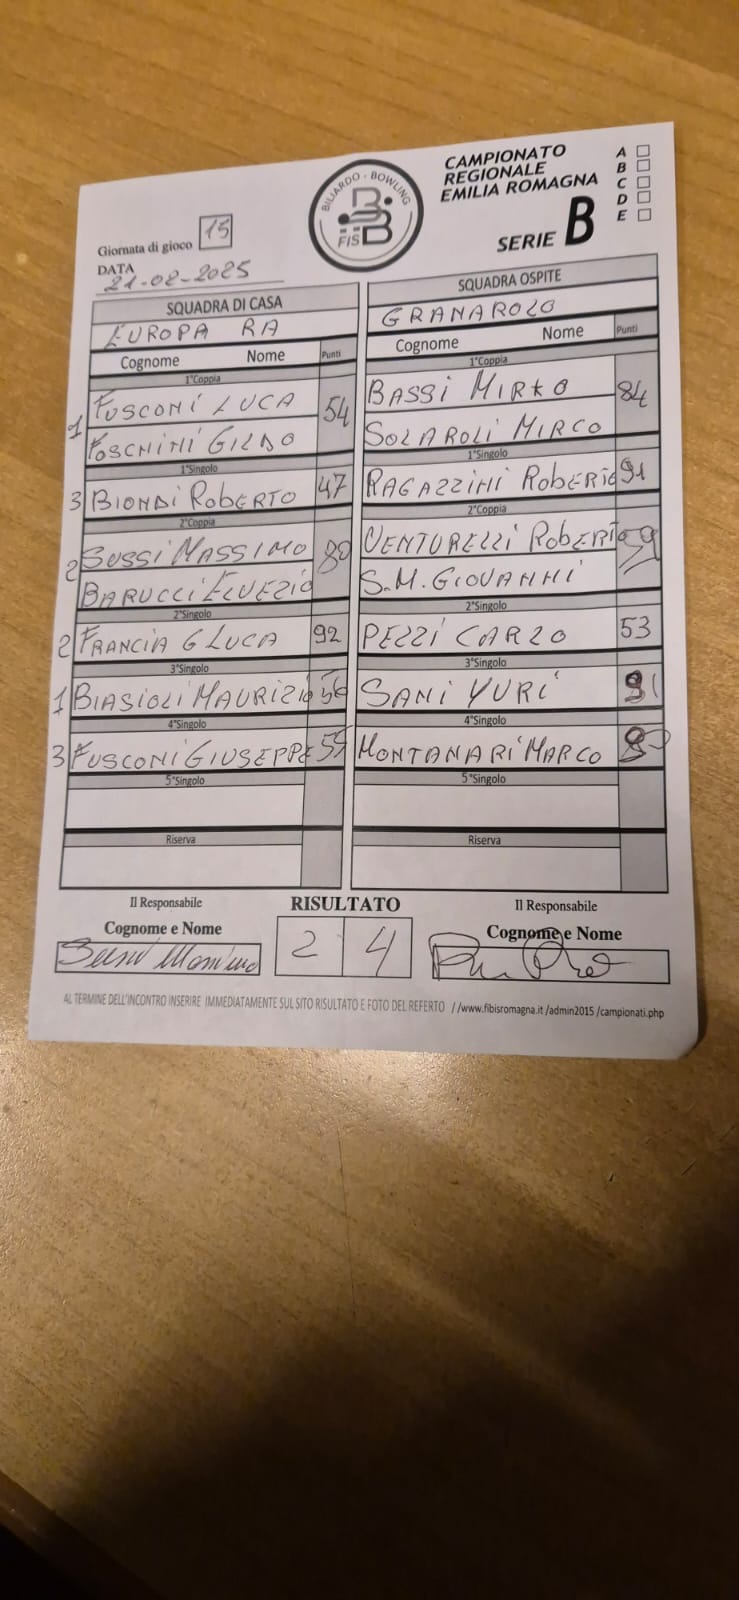 CAMPIONATO
REGIONALE
EMILIA ROMAGNA
SERIE B
A
B
C
D
E
BILIARDO - BOWLING
FISBB
Giornata di gioco 15
DATA 21-02-2025
SQUADRA DI CASA SQUADRA OSPITE
EUROPA RA GRANAROLO
Cognome Nome Punti Cognome Nome Punti
1°Coppia 1°Coppia
1 FUSCONI LUCA 54 BASSI MIRKO 84
FOSCHINI GILDO SOLAROLI MIRCO
1°Singolo 1°Singolo
3 BIONDI ROBERTO 47 RAGAZZINI ROBERTO 91
2°Coppia 2°Coppia
2 SUSSI MASSIMO 80 VENTURELLI ROBERTO 59
BARUCCI ELVEZIO S.M. GIOVANNI
2°Singolo 2°Singolo
2 FRANCIA G LUCA 92 PEZZI CARLO 53
3°Singolo 3°Singolo
1 BIASIOLI MAURIZIO 56 SANI YURI 91
4°Singolo 4°Singolo
3 FUSCONI GIUSEPPE 55 MONTANARI MARCO
5°Singolo 5°Singolo
Riserva Riserva
Il Responsabile RISULTATO Il Responsabile
Cognome e Nome 2 4 Cognome e Nome
AL TERMINE DELL'INCONTRO INSERIRE IMMEDIATAMENTE SUL SITO RISULTATO E FOTO DEL REFERTO //www.fibisromagna.it/admin2015/campionati.php